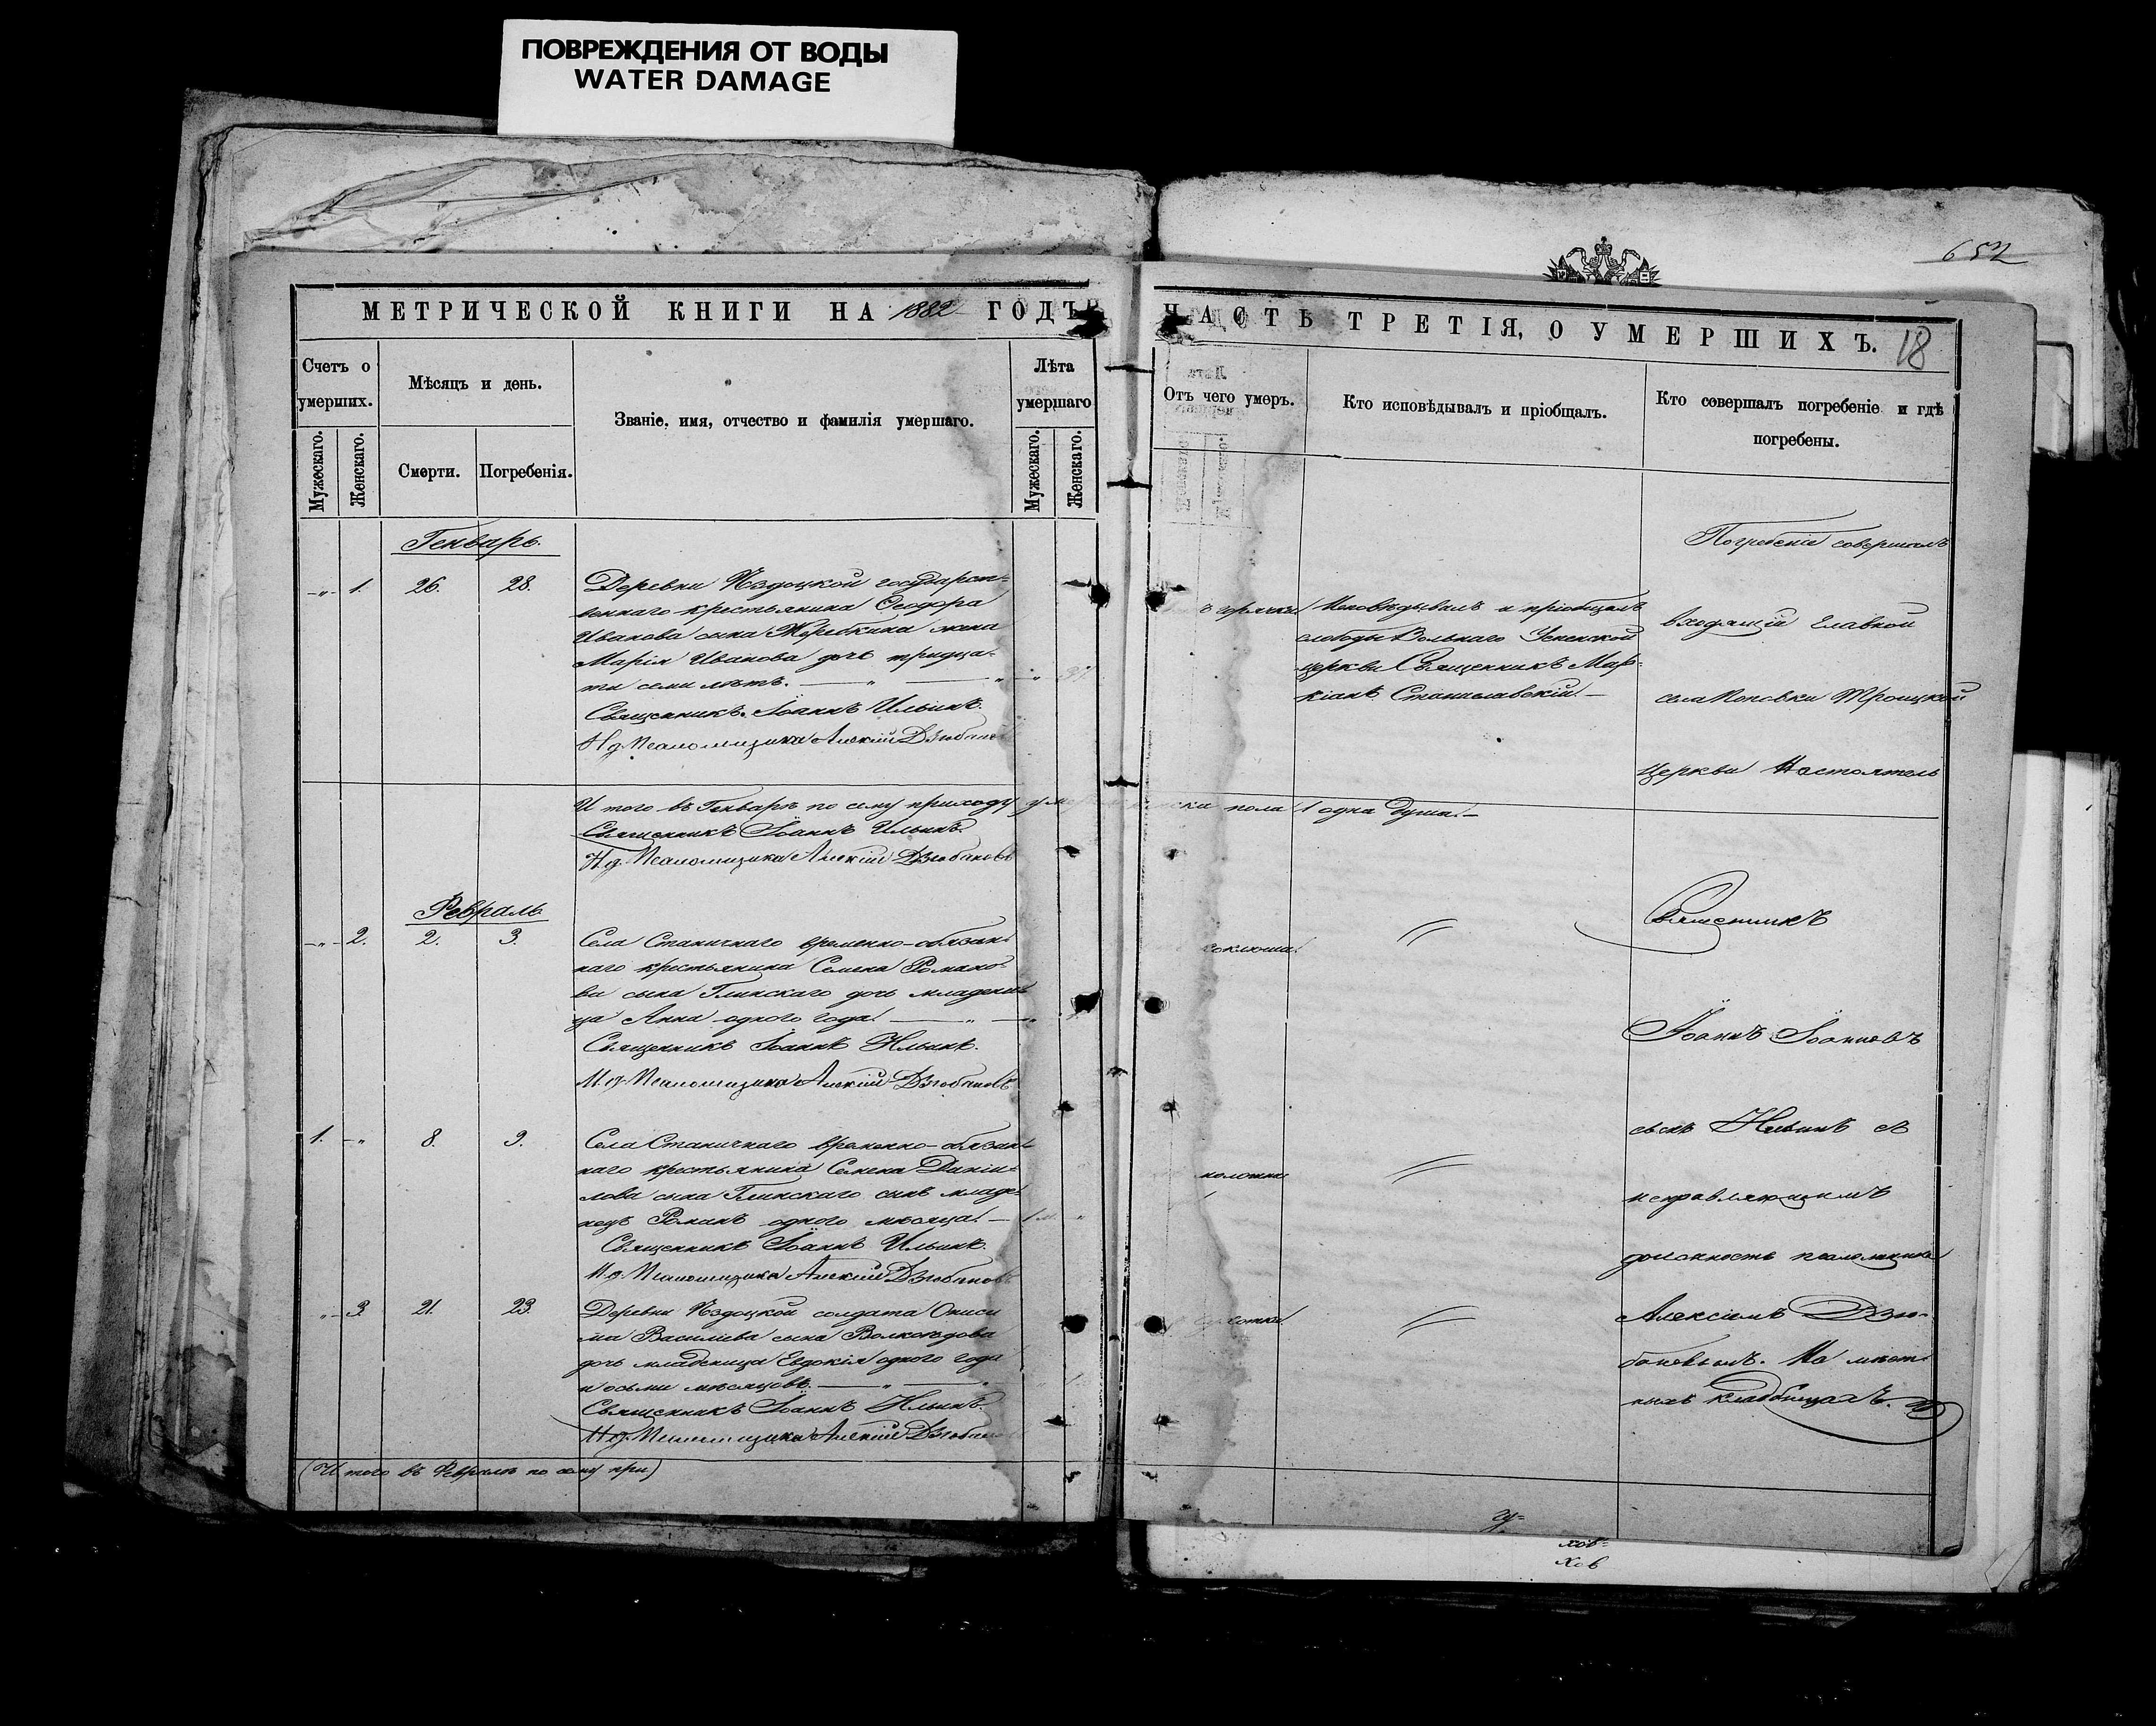 ПОВРЕЖДЕНИЯ ОТ ВОДЫ
WATER DAMAGE
652
МЕТРИЧЕСКОЙ КНИГИ НА 1882 ГОДЪ
Счетъ о умершихъ.
Мужескаго.
Женскаго.
Мѣсяцъ и день.
Смерти.
Погребенія.
Званіе, имя, отчество и фамилія умершаго.
Лѣта умершаго
Мужескаго.
Женскаго.
Генварь.
-„- 1. 26. 28. Деревни государст-
веннаго крестьянина Сидора
Иванова сына Жеребкина жена
Марія Иванова дочь тридца-
ти семи лѣтъ. — „ — „ — „ 37
Священникъ Іоаннъ Ильинъ.
И д. Псаломщика Алексій Дзюбановъ
И того въ Генварѣ по сему приходу
Священникъ Іоаннъ Ильинъ.
И д. Псаломщика Алексій Дзюбановъ
Февраль
-„- 2. 2. 3. Села Станичнаго временно-обязан-
наго крестьянина Семена Романо-
ва сына Глинскаго дочь младени-
ца Анна одного года. — „ — „
Священникъ Іоаннъ Ильинъ.
И д. Псаломщика Алексій Дзюбановъ
1. -„ 8. 9. Села Станичнаго временно-обязан-
наго крестьянина Семена Даніи-
лова сына Глинскаго сынъ младе-
нецъ Романъ одного мѣсяца. — 1 м. „
Священникъ Іоаннъ Ильинъ.
И д. Псаломщика Алексій Дзюбановъ
„- 3. 21. 23. Деревни солдата Ониси
ма Василіева сына Волкоѣдова
дочь младеница Евдокія одного года
и осьми мѣсяцовъ. — „ — „
Священникъ Іоаннъ Ильинъ.
И д. Псаломщика Алексій Дзюбановъ
(И того въ Февралѣ по сему при)
ЧАСТЬ ТРЕТІЯ, О УМЕРШИХЪ. 18
Отъ чего умеръ.
Кто исповѣдывалъ и пріобщалъ.
Кто совершалъ погребеніе и гдѣ погребены.
горячки
Исповѣдывалъ и пріобщалъ
слободы Вольнаго Успенской
церкви Священникъ Мар-
кіанъ Станиславскій. —
пола 1 одна душа. —
коклюша.
Погребеніе совершалъ
входящій Главной
села Поповки Троицкой
Церкви Настоятель
Священникъ
Іоаннъ Іоанновъ
сынъ Ильинъ съ
исправляющимъ
должность псаломщика
Алексіемъ Дзю-
бановымъ. На мѣст-
ныхъ кладбищахъ.
хов=
хов